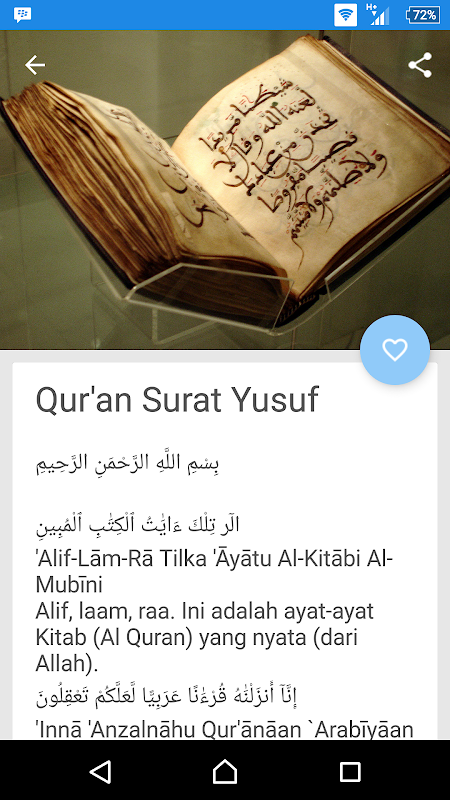 H+
72%
Qur'an Surat Yusuf
بِسْمِ اللَّهِ الرَّحْمَنِ الرَّحِيمِ
الٓر تِلْكَ ءَايَٰتُ ٱلْكِتَٰبِ ٱلْمُبِينِ
'Alif-Lām-Rā Tilka 'Āyātu Al-Kitābi Al-
Mubīni
Alif, laam, raa. Ini adalah ayat-ayat
Kitab (Al Quran) yang nyata (dari
Allah).
إِنَّآ أَنزَلْنَٰهُ قُرْءَٰنًا عَرَبِيًّا لَّعَلَّكُمْ تَعْقِلُونَ
'Innā 'Anzalnāhu Qur'ānāan `Arabīyāan